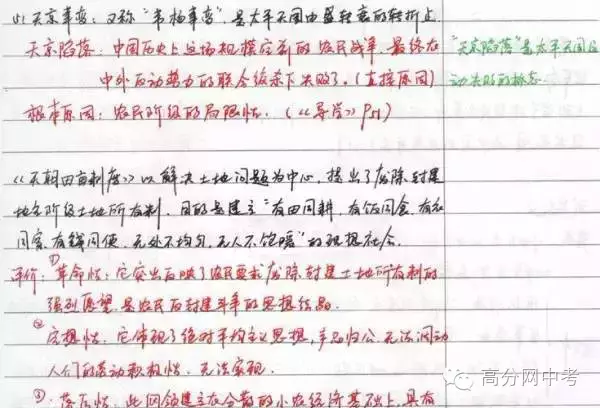 (5) 天京事变：又称"韦杨事变"，是太平天国由盛转衰的转折点
天京陷落：中国历史上这场规模空前的农民战争，最终在
中外反动势力的联合绞杀下失败了。(直接原因)
"天京陷落"是太平天国运
动失败的标志
根本原因：农民阶级的局限性。(《导学》P51)
《天朝田亩制度》以解决土地问题为中心，提出了废除封建
地主阶级土地所有制，目的是建立"有田同耕，有饭同食，有衣
同穿，有钱同使，无处不均匀，无人不饱暖"的理想社会。
评价：①革命性：它突出反映了农民要求废除封建土地所有制的
强烈愿望，是农民反封建斗争的思想结晶。
②空想性：它体现了绝对平均主义思想，产品归公，无法调动
人们的劳动积极性，无法实现。
③落后性：此纲领建立在分散的小农经济基础上，具有
高分网中考